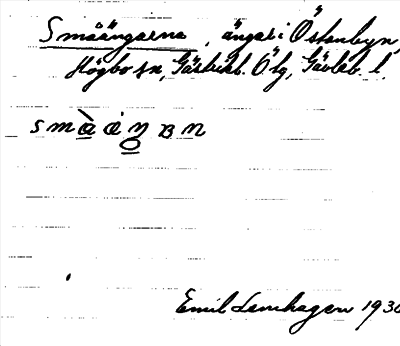 Småängarna, ängar i Östanbyn,
Högbo sn, Gästrikl. Ö tg, Gävleb. l.
småäŋɐn
Emil Lemhagen 1930